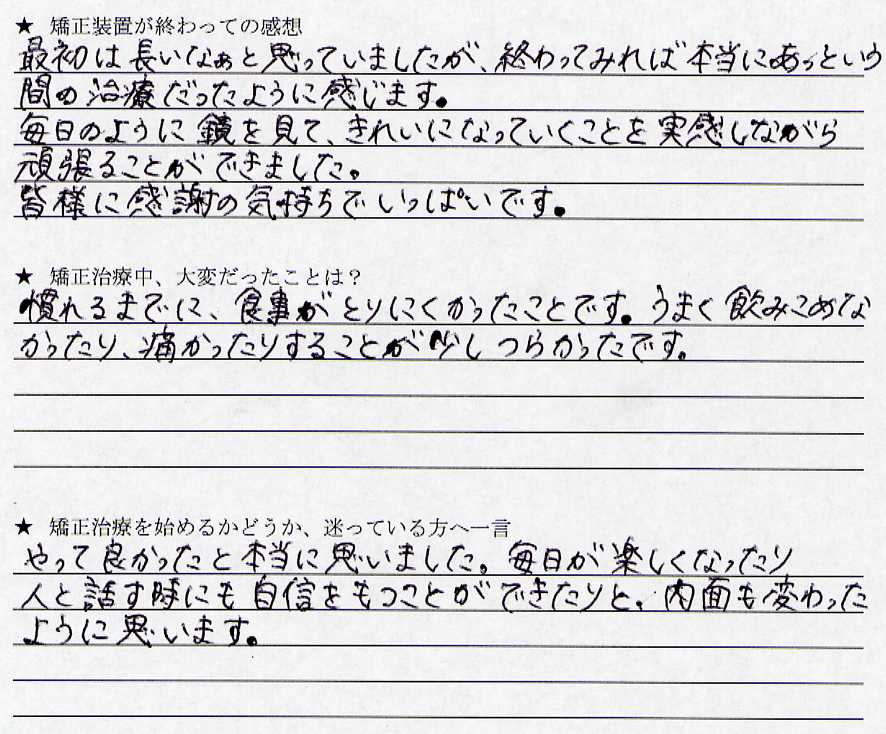 ★ 矯正装置が終わっての感想
最初は長いなぁと思っていましたが、終わってみれば本当にあっという
間の治療だったように感じます。
毎日のように鏡を見て、きれいになっていくことを実感しながら
頑張ることができました。
皆様に感謝の気持ちでいっぱいです。
★ 矯正治療中、大変だったことは？
慣れるまでに、食事がとりにくかったことです。うまく飲みこめな
かったり、痛かったりすることが少しつらかったです。
★ 矯正治療を始めるかどうか、迷っている方へ一言
やって良かったと本当に思いました。毎日が楽しくなったり
人と話す時にも自信をもつことができたりと、内面も変わった
ように思います。